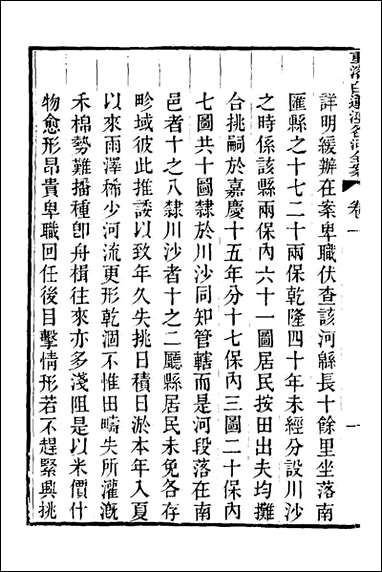 重濬白蓮涇各河全案 卷一 一
詳明緩辦在案卑職伏查該河縣長十餘里坐落南
匯縣之十七二十兩保乾隆四十年未經分設川沙
之時係該縣兩保內六十一圖居民按田出夫均攤
合挑嗣於嘉慶十五年分十七保內三圖二十保內
七圖共十圖隸於川沙同知管轄而是河段落在南
邑者十之八隸川沙者十之二廳縣居民未免各存
畛域彼此推諉以致年久失挑日積日淤本年入夏
以來雨澤稀少河流更形乾涸不惟田疇失所灌漑
禾棉勢難播種卽舟楫往來亦多淺阻是以米價什
物愈形昂貴卑職回任後目擊情形若不趕緊興挑